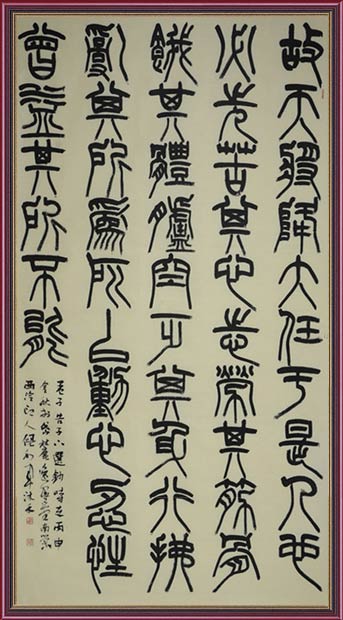 故天將降大任于是人也
必先苦其心志勞其筋骨
餓其體膚空乏其身行拂
亂其所爲所以動心忍性
曾益其所不能
孟子告子下選鈔時在丙申
金秋於
西泠印人